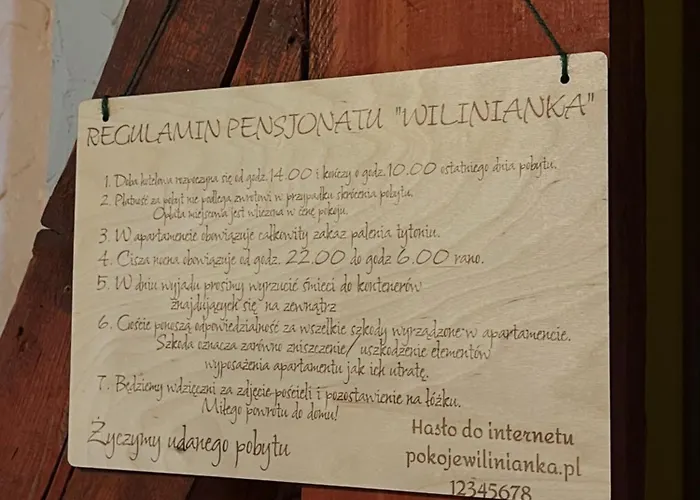 REGULAMIN PENSJONATU "WILINIANKA"
1. Doba hotelowa rozpoczyna się od godz. 14.00 i kończy o godz. 10.00 ostatniego dnia pobytu.
2. Płatność za pobyt nie podlega zwrotowi w przypadku skrócenia pobytu.
Opłata miejscowa jest wliczona w cenę pokoju.
3. W apartamencie obowiązuje całkowity zakaz palenia tytoniu.
4. Cisza nocna obowiązuje od godz. 22.00 do godz 6.00 rano.
5. W dniu wyjadu prosimy wyrzucić śmieci do kontenerów
znajdujących się na zewnątrz
6. Goście ponoszą odpowiedzialność za wszelkie szkody wyrządzone w apartamencie.
Szkoda oznacza zarówno zniszczenie/ uszkodzenie elementów
wyposażenia apartamentu jak ich utratę.
7. Będziemy wdzięczni za zdjęcie pościeli i pozostawienie na łóżku.
Miłego powrotu do domu!
Życzymy udanego pobytu
Hasło do internetu
pokojewilinianka.pl
12345678